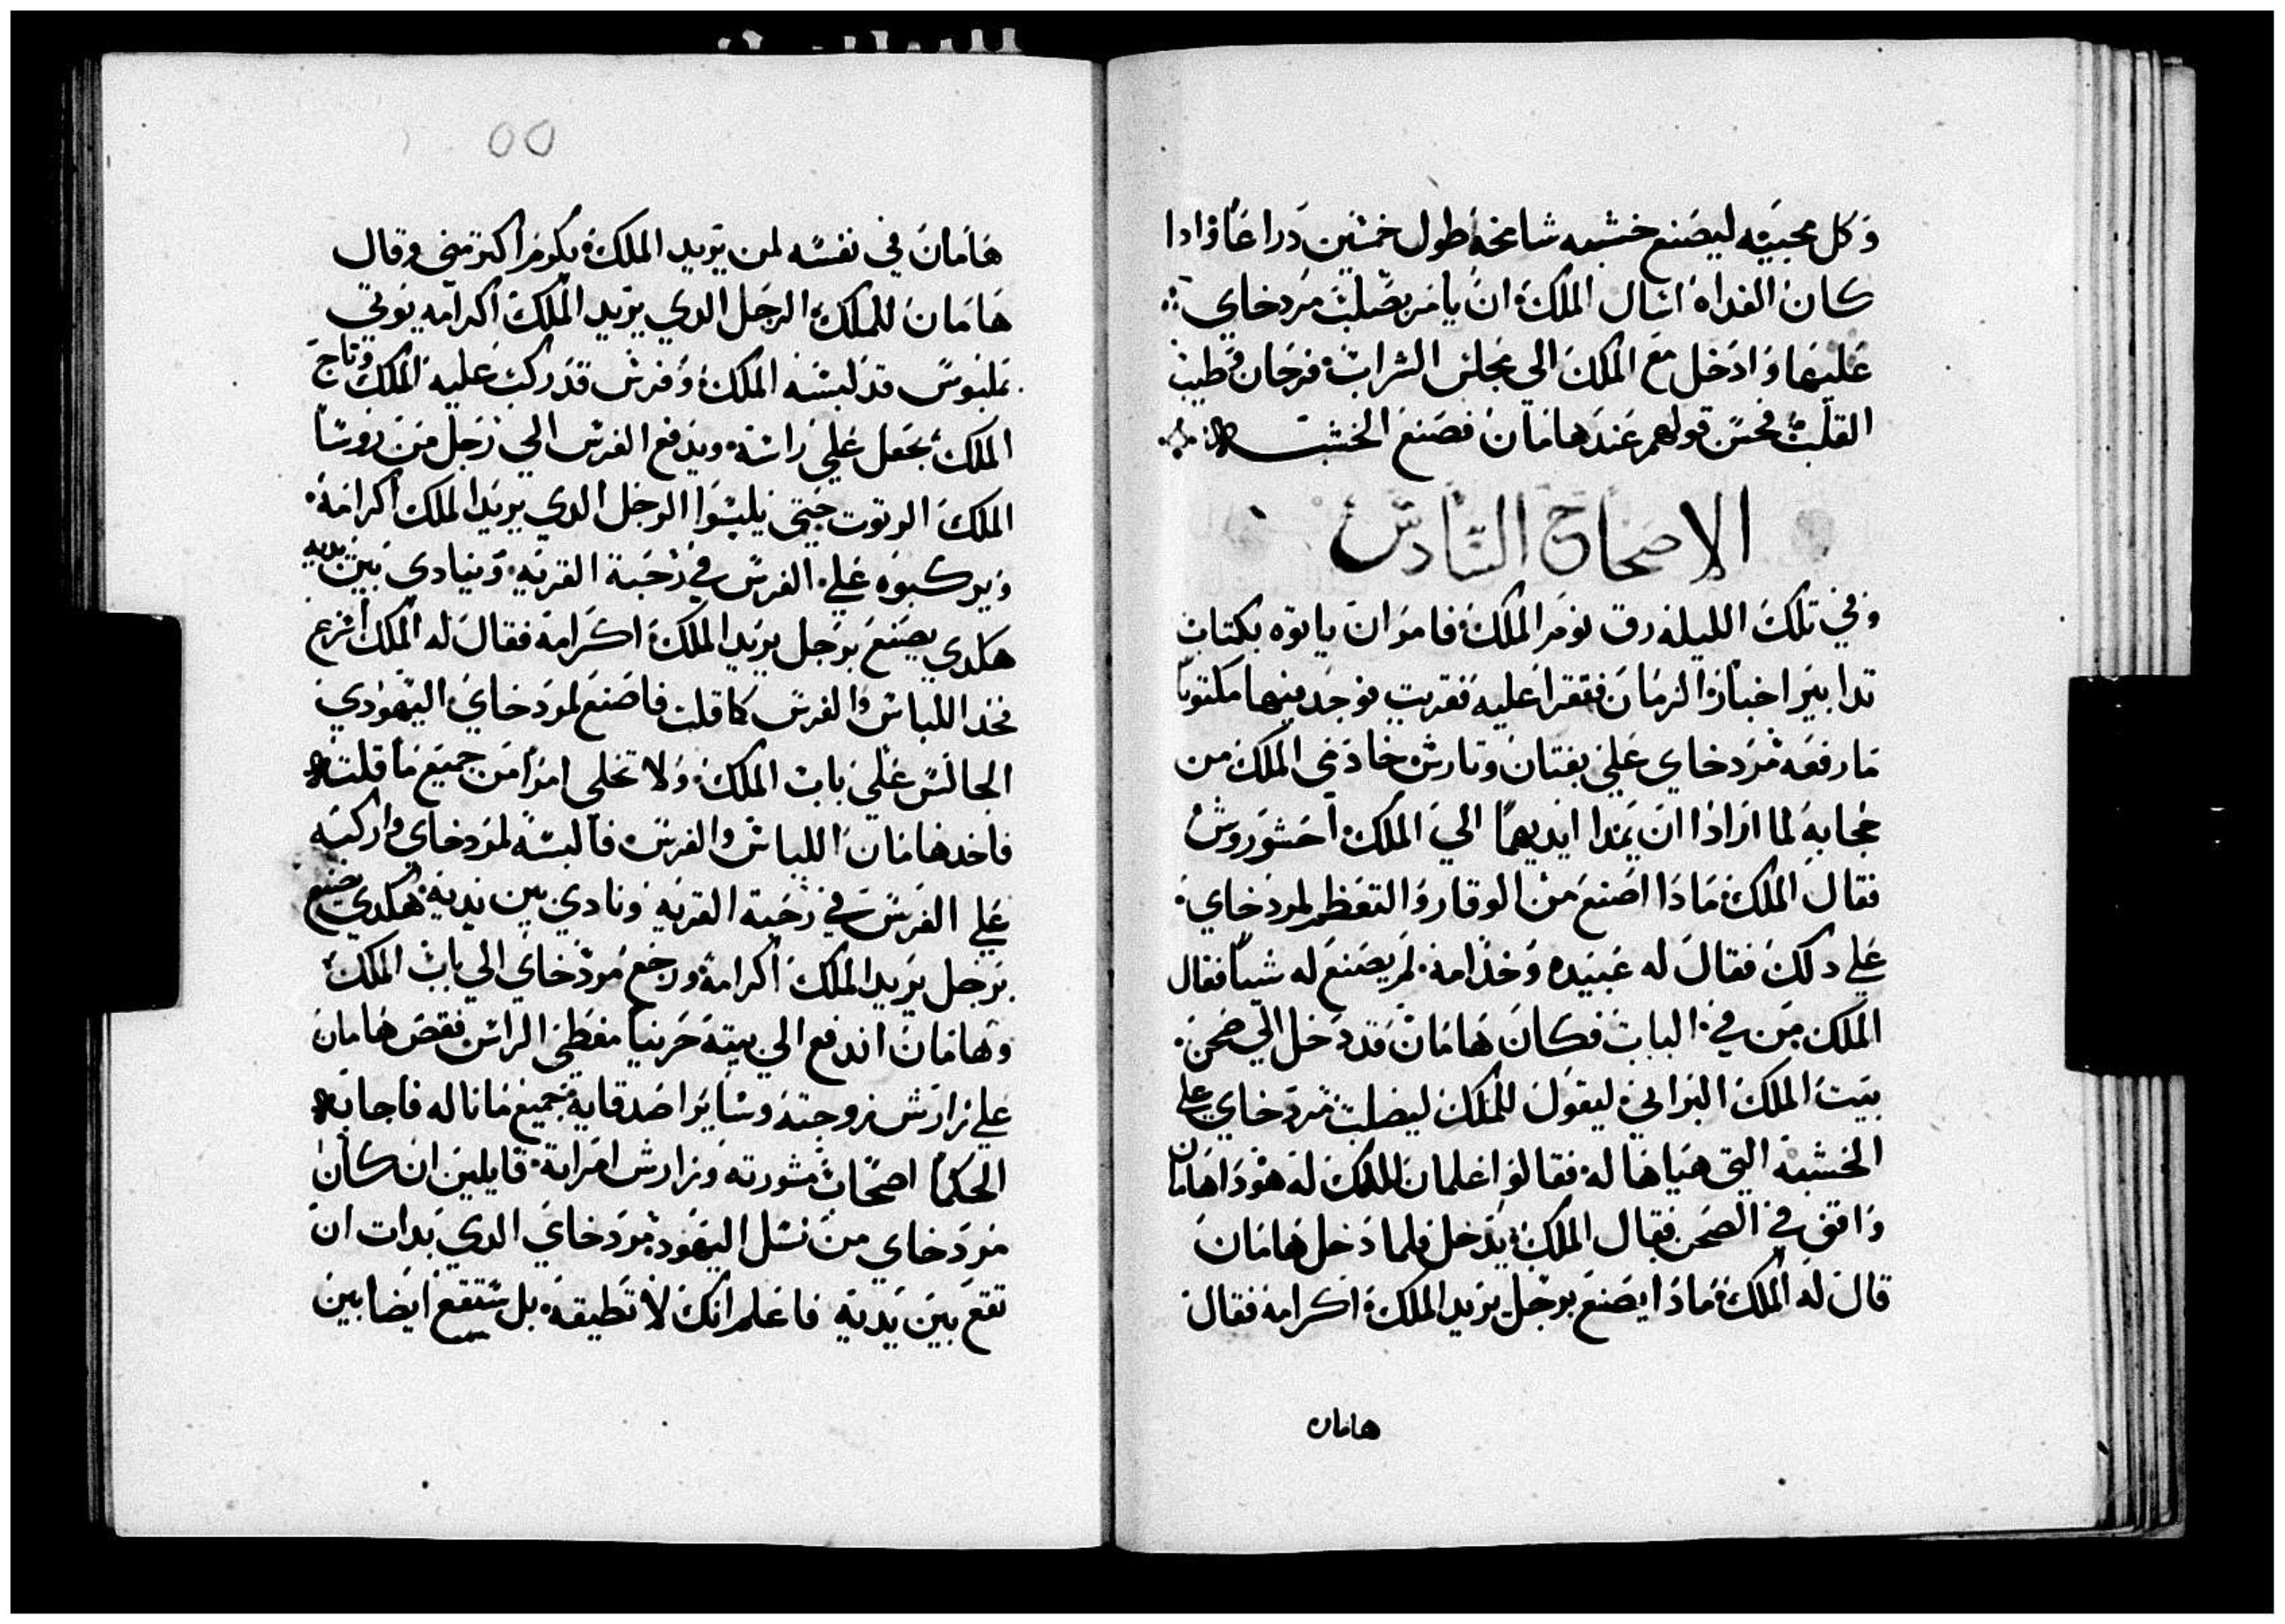 وكل محبيه ليصنع خشبه شامخه طول خمسين دراعا وادا
كان الغداه اسال الملك ان يامر بصلب مردخاي
عليها وادخل مع الملك الي مجلس الشراب فرحان وطيب
القلب فحسن قولهم عند هامان فصنع الخشبه
الاصحاح السادس
وفي تلك الليله رق نوم الملك فامر ان ياتوه بكتاب
تدابير اخبار الزمان فتقرا عليه فقريت فوجد فيها مكتوبا
ما رفعه مردخاي علي بغتان وتارش خادمي الملك من
حجابه لما ارادا ان يمدا ايديهما الي الملك احشوروش
فقال الملك مادا اصنع من الوقار والتعظم لمردخاي
علي دلك فقال له عبيده وخدامه لم يصنع له شيا فقال
الملك من في الباب فكان هامان قد دخل الي صحن
بيت الملك البراني ليقول للملك ليصلب مردخاي علي
الخشبه التي هياها له فقالوا غلمان الملك له هودا هامان
واقف في الصحن فقال الملك يدخل فلما دخل هامان
قال له الملك مادا يصنع برجل يريد الملك اكرامه فقال
هامان
٥٥
هامان في نفسه لمن يريد الملك يكرم اكتر مني وقال
هامان للملك الرجل الدي يريد الملك اكرامه يوتي
بملبوس قد لبسه الملك وفرس قد ركب عليه الملك وتاج
الملك يجعل علي راسه ويدفع الفرس الي رجل من روسا
الملك الرتوت حتي يلبسوا الرجل الدي يريد الملك اكرامه
ويركبوه علي الفرس في رحبة القريه وينادي بين يديه
هكدي يصنع برجل يريد الملك اكرامه فقال له الملك اسرع
فخد اللباس والفرس كما قلت فاصنع لمردخاي اليهودي
الجالس علي باب الملك ولا تخلي امرا من جميع ما قلت
فاخد هامان اللباس والفرس فالبسه لمردخاي واركبه
علي الفرس في رحبة القريه ونادي بين يديه هكدي يصنع
برجل يريد الملك اكرامه ورجع مردخاي الي باب الملك
وهامان اندفع الي بيته حزينا مغطي الراس فقص هامان
علي زارش زوجته وساير اصدقايه بجميع ما ناله فاجابه
الحكما اصحاب مشورته وزارش امراته قايلين ان كان
مردخاي من نسل اليهود مردخاي الدي بدات ان
تقع بين يديه فاعلم انك لا تطيقه بل ستقع ايضا بين